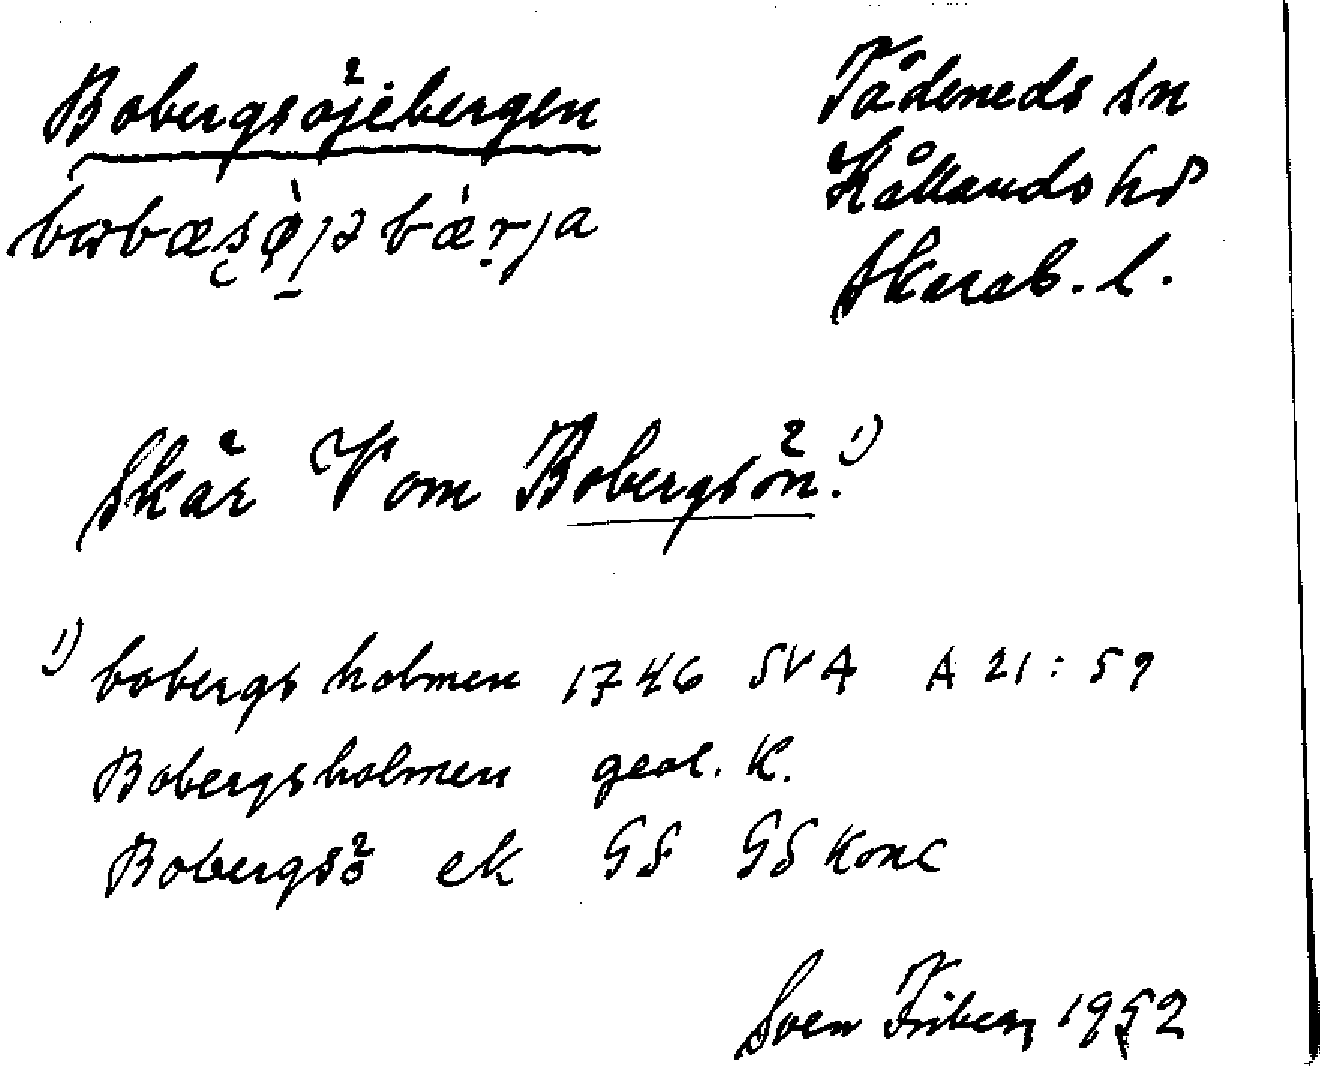 Bobergsöjebergen
Tådeneds sn
Kållands hd
Skarab. l.
Skär V om Bobergsön. 1)
1) bobergs holmen 1746 SVA A 21:59
Bobergsholmen geol. K.
Bobergsö ek GS GS konc
Sven Friberg 1952